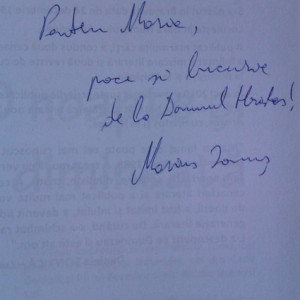 Pentru Maria,
pace și bucurie
de la Domnul Hristos!
Marius